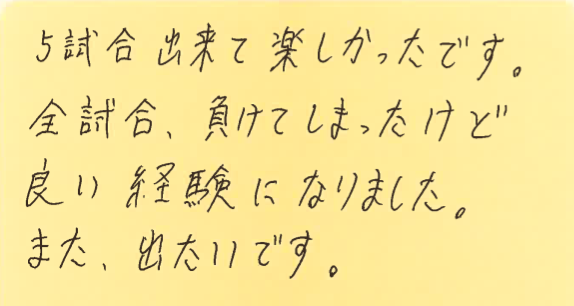 5試合出来て楽しかったです。
全試合、負けてしまったけど
良い経験になりました。
また、出たいです。